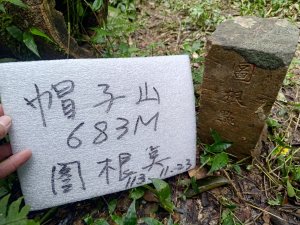 帽子山
683M
圖根點
113.11.23
圖根點